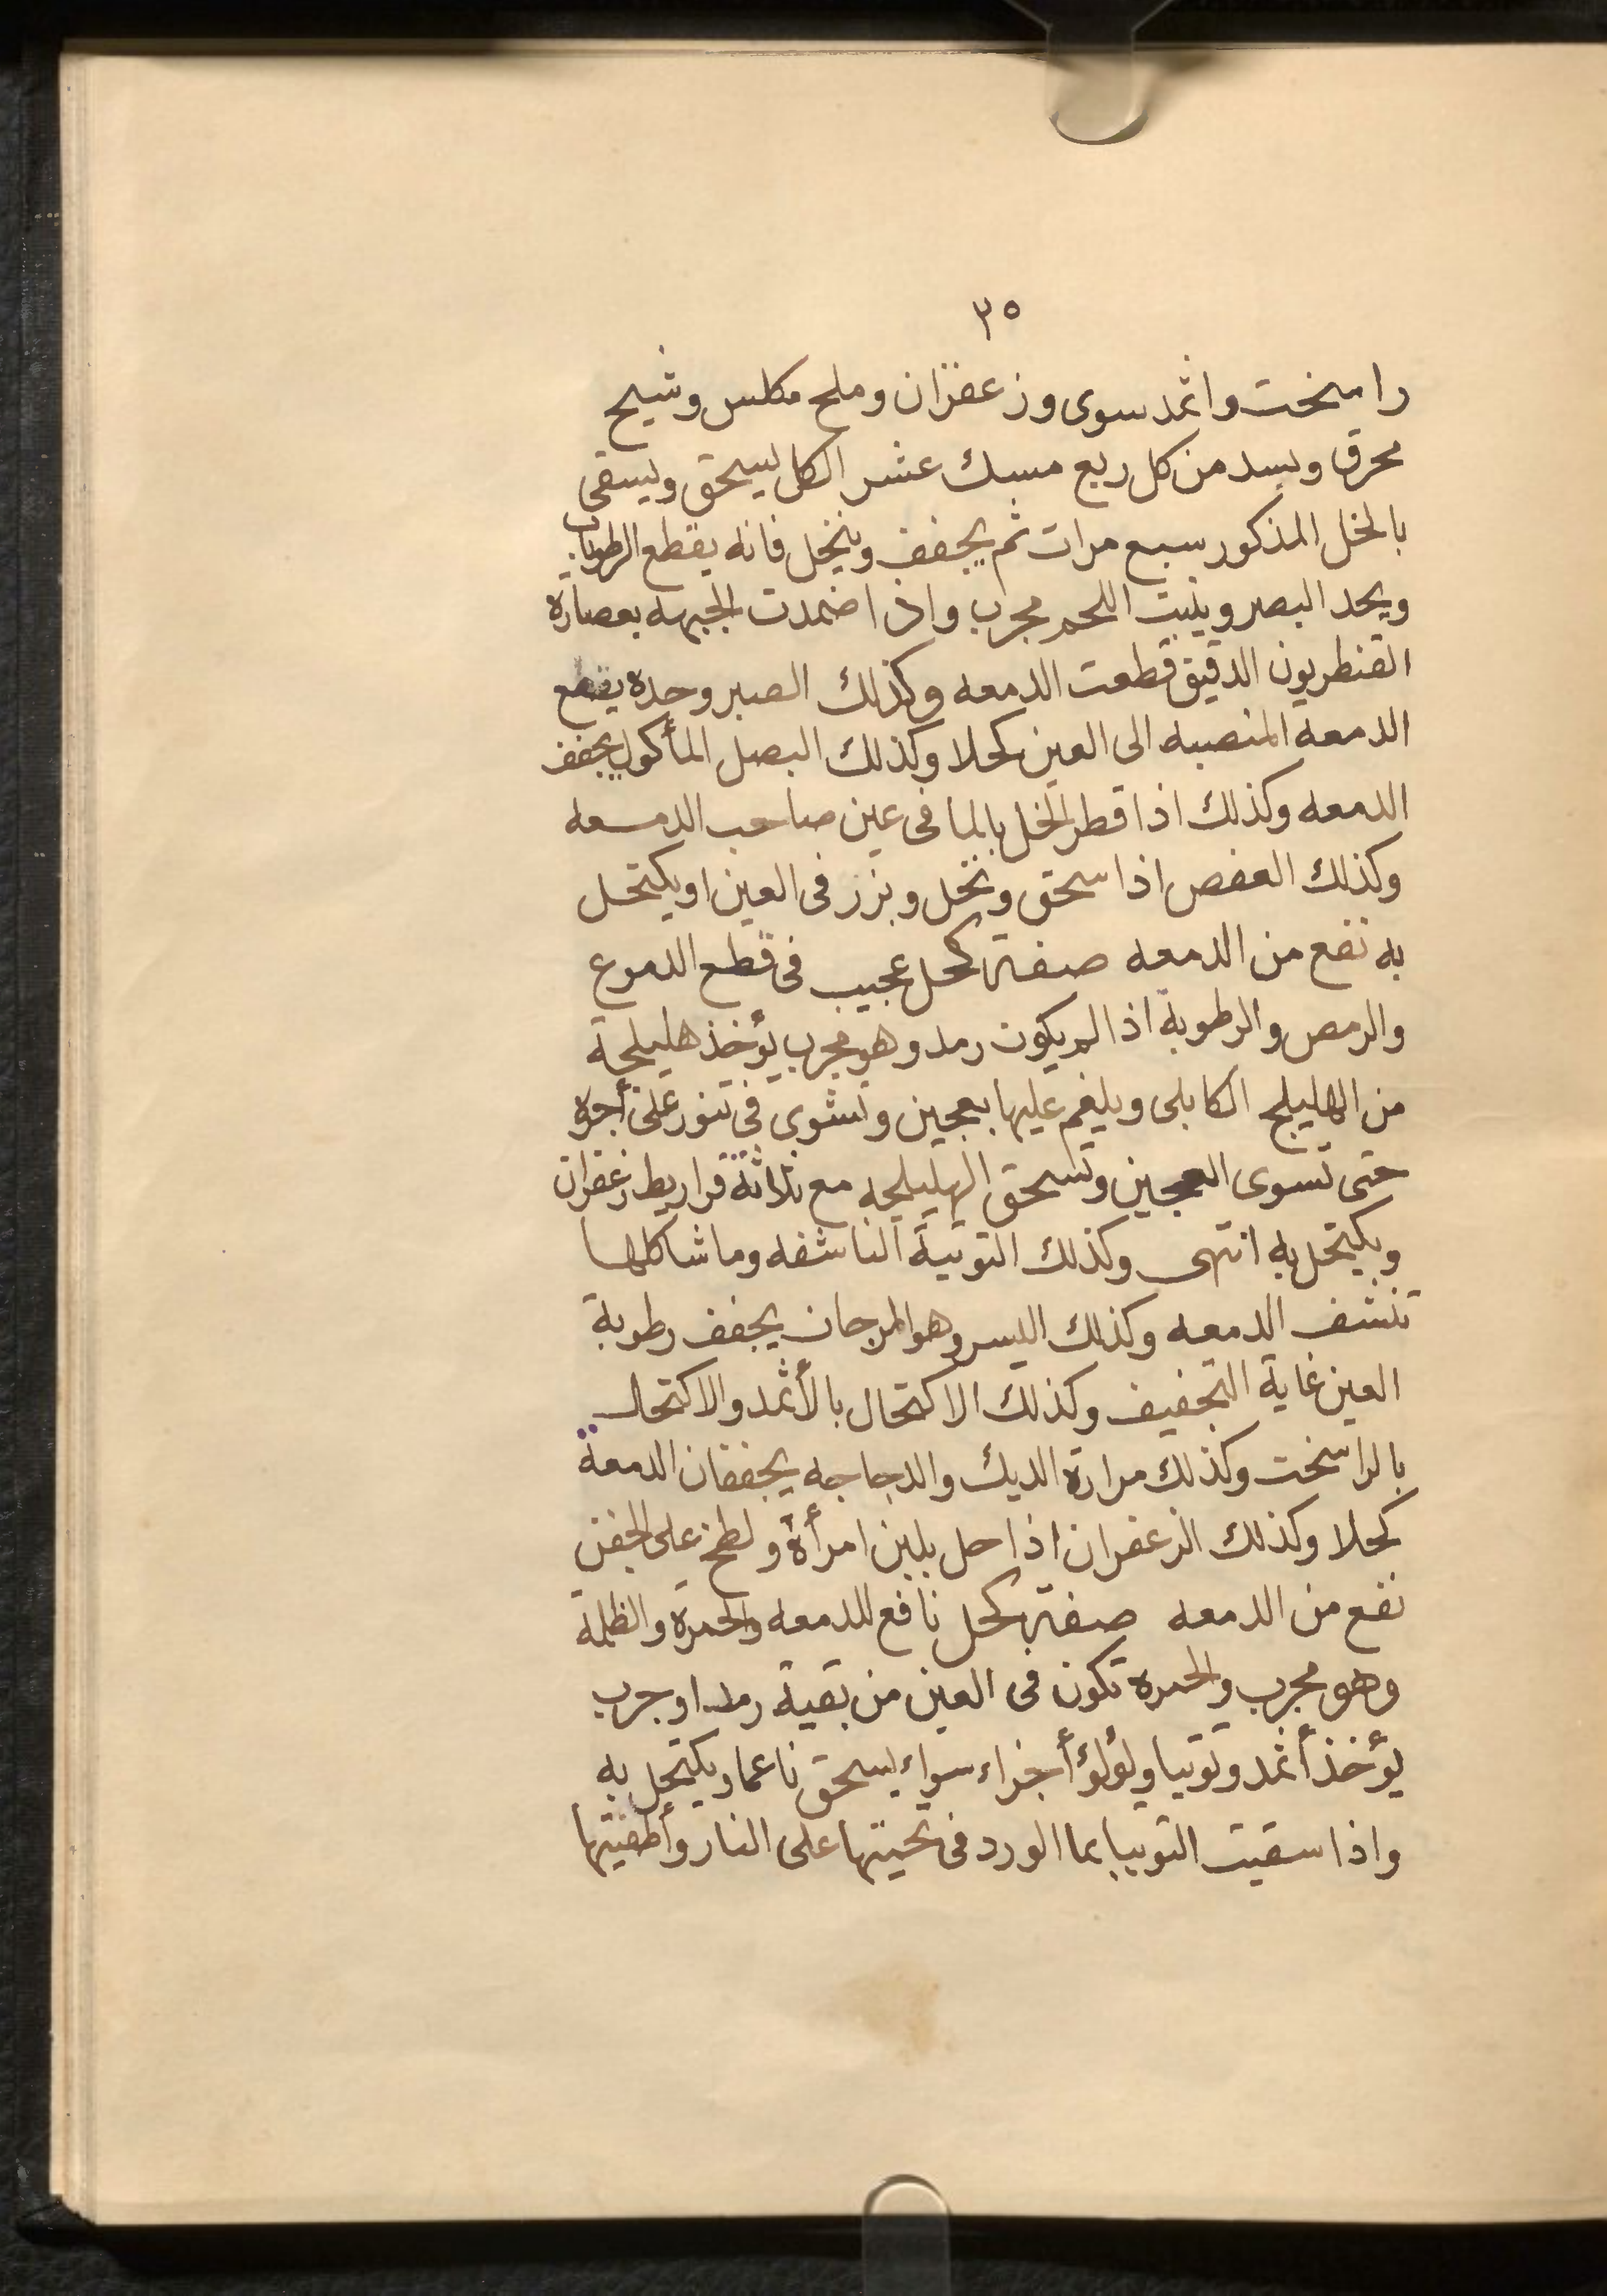 ٣٥
راسخت واثمد سوى وزعفران وملح مكلس وشيح
محرق وبسد من كل ربع مسك عشر الكل يسحق ويسقى
بالخل المذكور سبع مرات ثم يجفف وينخل فانه يقطع الرطوبات
ويحد البصر وينبت اللحم مجرب واذا ضمدت الجبهه بعصارة
القنطريون الدقيق قطعت الدمعه وكذلك الصبر وحده يقطع
الدمعه المنصبه الى العين كحلا وكذلك البصل المأكول يجفف
الدمعه وكذلك اذا قطر الخل بالما فى عين صاحب الدمعه
وكذلك العفص اذا سحق ونخل وبزر فى العين او يكتحل
به نفع من الدمعه صفة كحل عجيب فى قطع الدموع
والرمص والرطوبة اذا لم يكون رمد وهو مجرب يؤخذ هليلجة
من الهليلج الكابلى ويلغم عليها بعجين وتشوى فى تنور على أجره
حتى تسوى العجين وتسحق الهليلجه مع ثلاثة قراريط زعفران
ويكتحل به انتهى وكذلك التوتية الناشفه وما شاكلها
تنشف الدمعه وكذلك البسر وهو المرجان يجفف رطوبة
العين غاية التجفيف وكذلك الاكتحال بالأثمد والاكتحال
بالراسخت وكذلك مرارة الديك والدجاجه يجففان الدمعة
كحلا وكذلك الزعفران اذا حل بلبن امرأة ولطخ على الجفن
نفع من الدمعه صفة كحل نافع للدمعه والحمرة والظلمة
وهو مجرب والحمره تكون فى العين من بقية رمد او جرب
يؤخذ أثمد وتوتيا ولؤلؤ أجزاء سواء يسحق ناعما ويكتحل به
واذا سقيت التوتيا بما الورد فى تحيتها على النار وأطفيتها